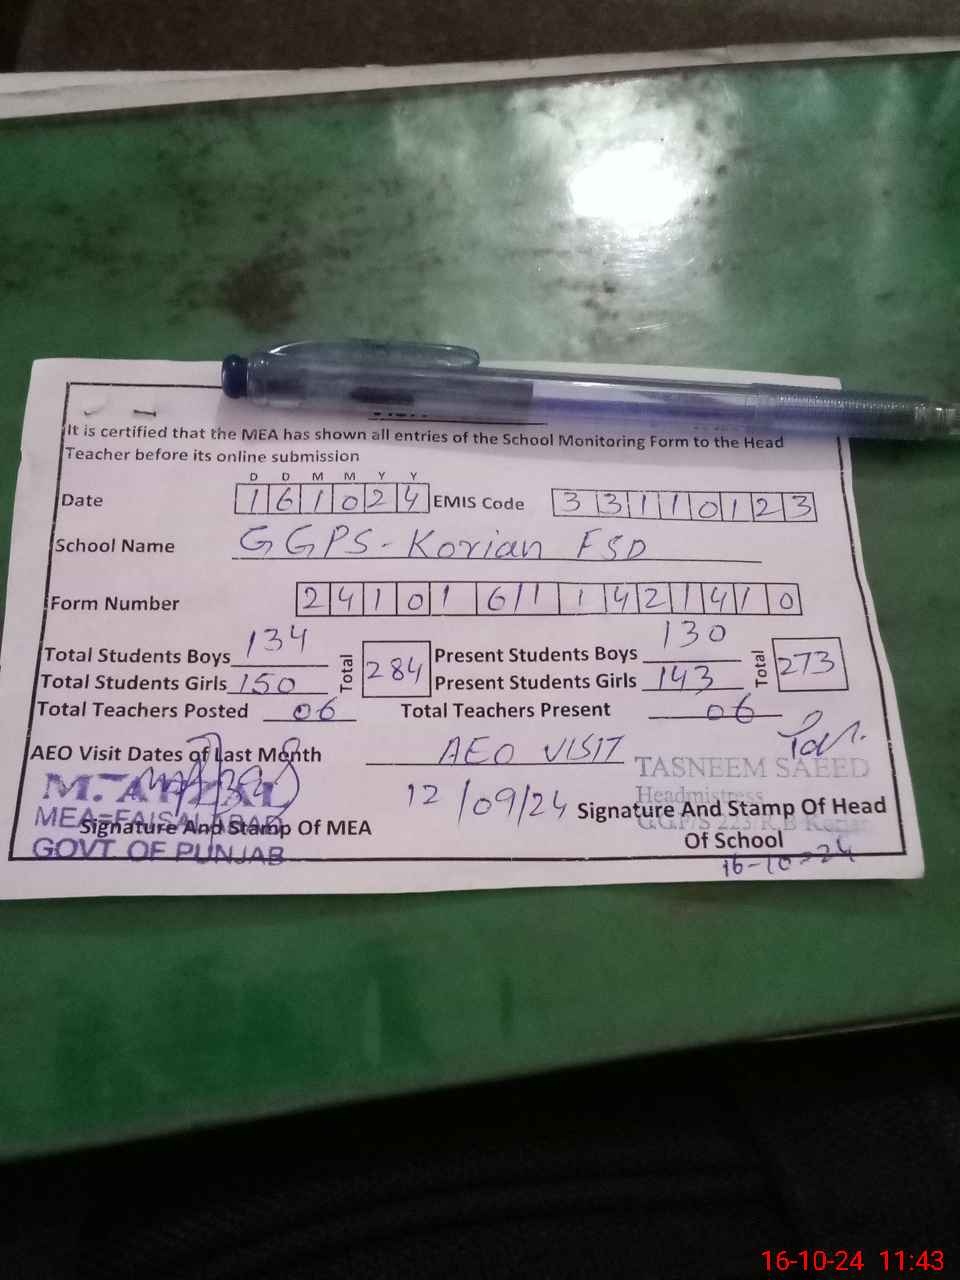 It is certified that the MEA has shown all entries of the School Monitoring Form to the Head
Teacher before its online submission
D D M M Y Y
Date 161024 EMIS Code 33110123
School Name GGPS-Korian FSD
Form Number 2410161142 1410
Total Students Boys 134 Total 284 Present Students Boys 130 Total 273
Total Students Girls 150 Present Students Girls 143
Total Teachers Posted 06 Total Teachers Present 06
AEO Visit Dates of Last Month AEO VISIT
12/09/24
TASNEEM SAEED
Headmistress
Signature And Stamp Of Head
Of School
16-10-24
MEA-FAISALABAD
Signature And Stamp Of MEA
GOVT OF PUNJAB
16-10-24 11:43